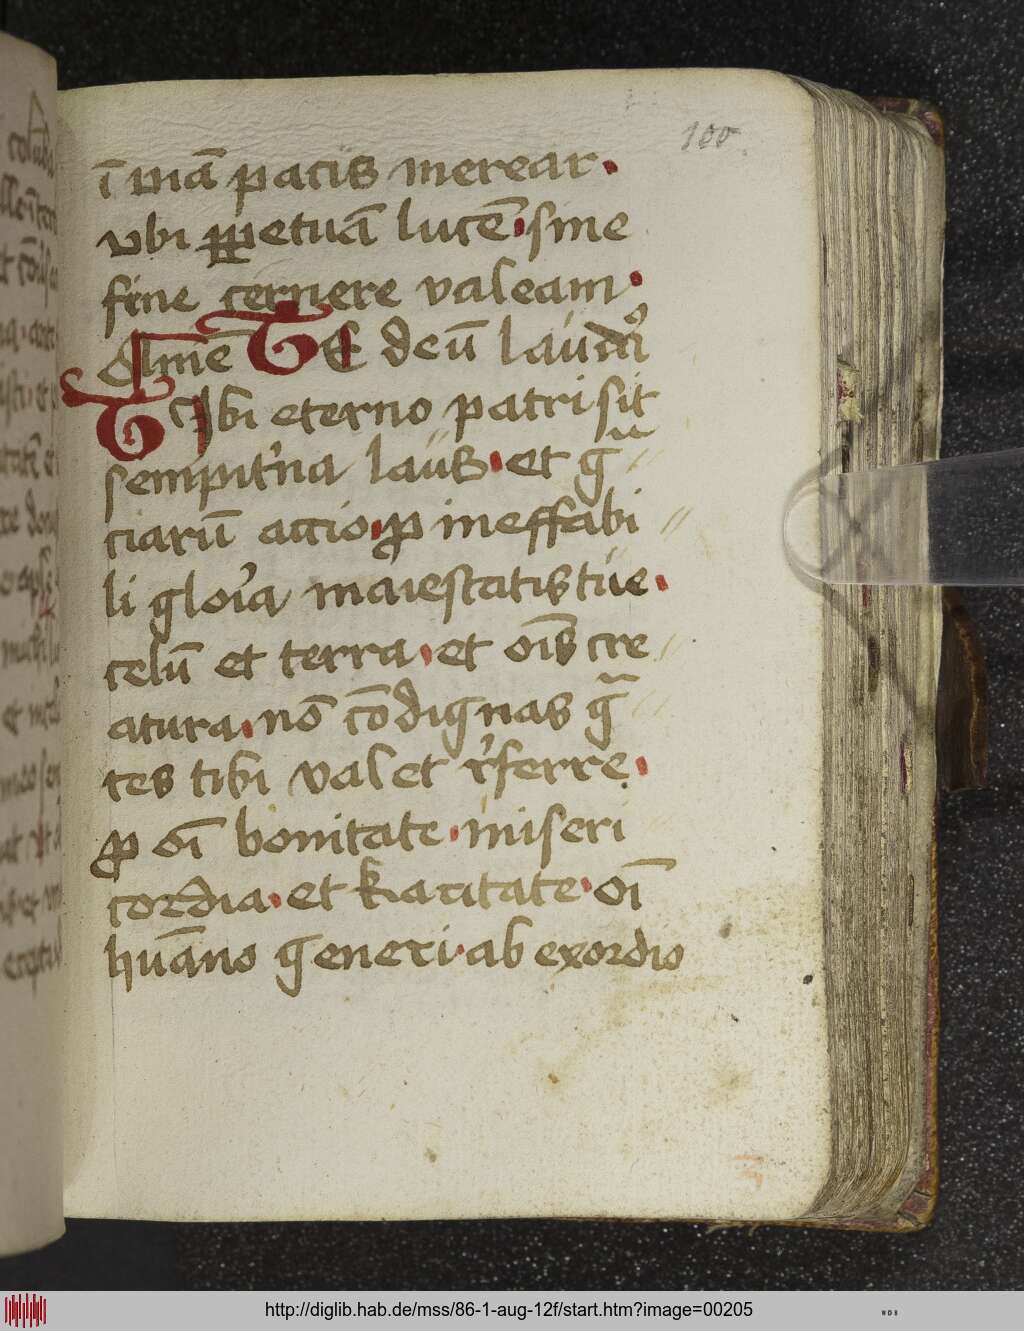 100
ī viā pacis merear.
vbi ꝑpetuā lucē. sine
fine cernere valeam.
Amē TE deū laudaꝰ
Tibi eterno patri sit
sempit'na laus. et g̾
ciarū actio. ꝓ ineffabi
li glor'a maiestatis tue.
celū et terra. et oīs cre
atura. nō cōdignas g̾
tes tibi valet r'ferre.
ꝓ oī bonitate. miseri
cordia. et karitate. oī
huāno generi. ab exordio
http://diglib.hab.de/mss/86-1-aug-12f/start.htm?image=00205